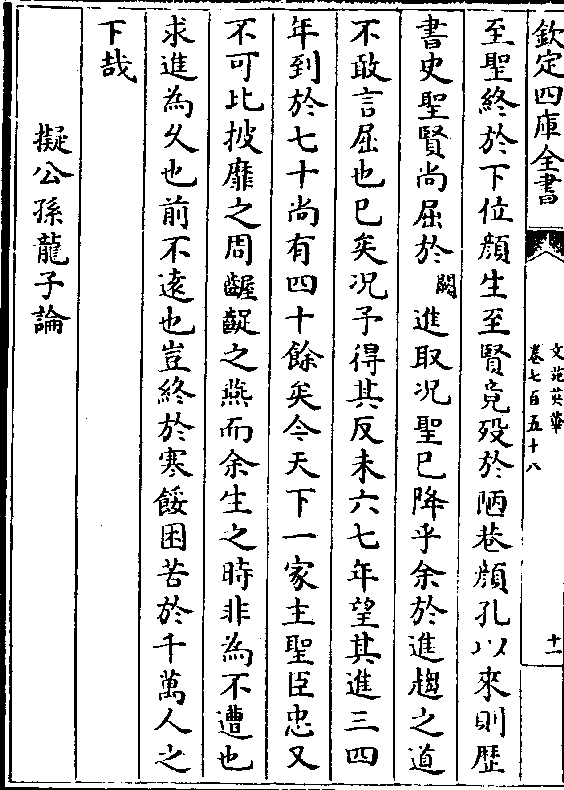 欽定四庫全書
文苑英華
卷七百五十八
十一
至聖終於下位顔生至賢竟殁於陋巷顔孔以來則歴
書史聖賢尚屈於闕進取况聖已降乎余於進趨之道
不敢言屈也已矣况予得其反未六七年望其進三四
年到於七十尚有四十餘矣今天下一家主聖臣忠又
不可比披靡之周齷齪之燕而余生之時非為不遭也
求進為乆也前不逺也豈終於寒餒困苦於千萬人之
下哉
擬公孫龍子論